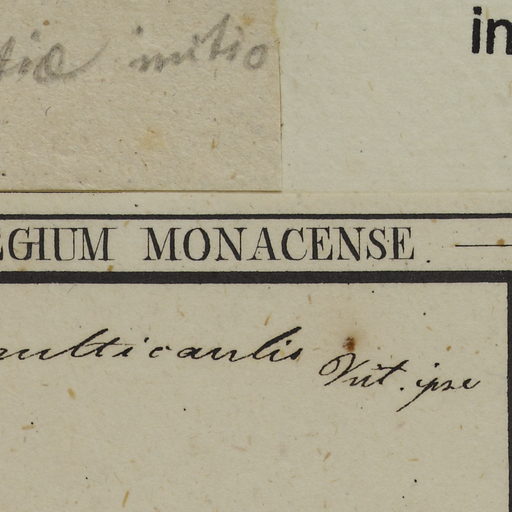 tiæ initio
in
EGIUM MONACENSE.
multicaulis
Vut. ipse